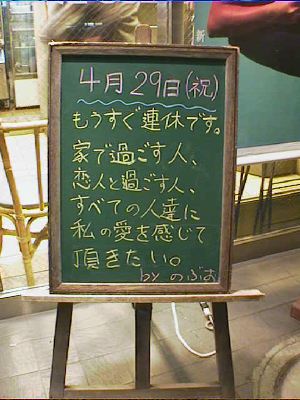 4月29日(祝)
もうすぐ連休です。
家で過ごす人、
恋人と過ごす人、
すべての人達に
私の愛を感じて
頂きたい。
by のぶお
新